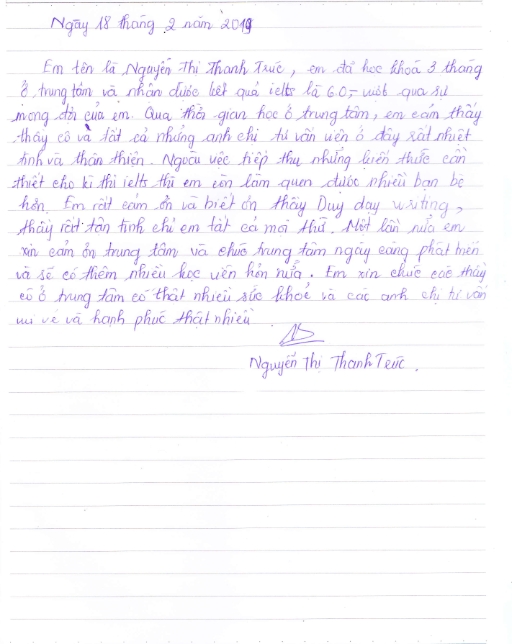 Ngày 18 tháng 2 năm 2019
Em tên là Nguyễn Thị Thanh Trúc, em đã học khoá 3 tháng
ở trung tâm và nhận được kết quả ielts là 6.0, vượt qua sự
mong đợi của em. Qua thời gian học ở trung tâm, em cảm thấy
thầy cô và tất cả những anh chị tư vấn viên ở đây rất nhiệt
tình và thân thiện. Ngoài việc tiếp thu những kiến thức cần
thiết cho kì thi ielts thì em còn làm quen được nhiều bạn bè
hơn. Em rất cảm ơn và biết ơn thầy Duy dạy writing,
thầy rất tận tình chỉ em tất cả mọi thứ. Một lần nữa em
xin cảm ơn trung tâm và chúc trung tâm ngày càng phát triển
và sẽ có thêm nhiều học viên hơn nữa. Em xin chúc các thầy
cô ở trung tâm có thật nhiều sức khoẻ và các anh chị tư vấn
vui vẻ và hạnh phúc thật nhiều
Nguyễn Thị Thanh Trúc.